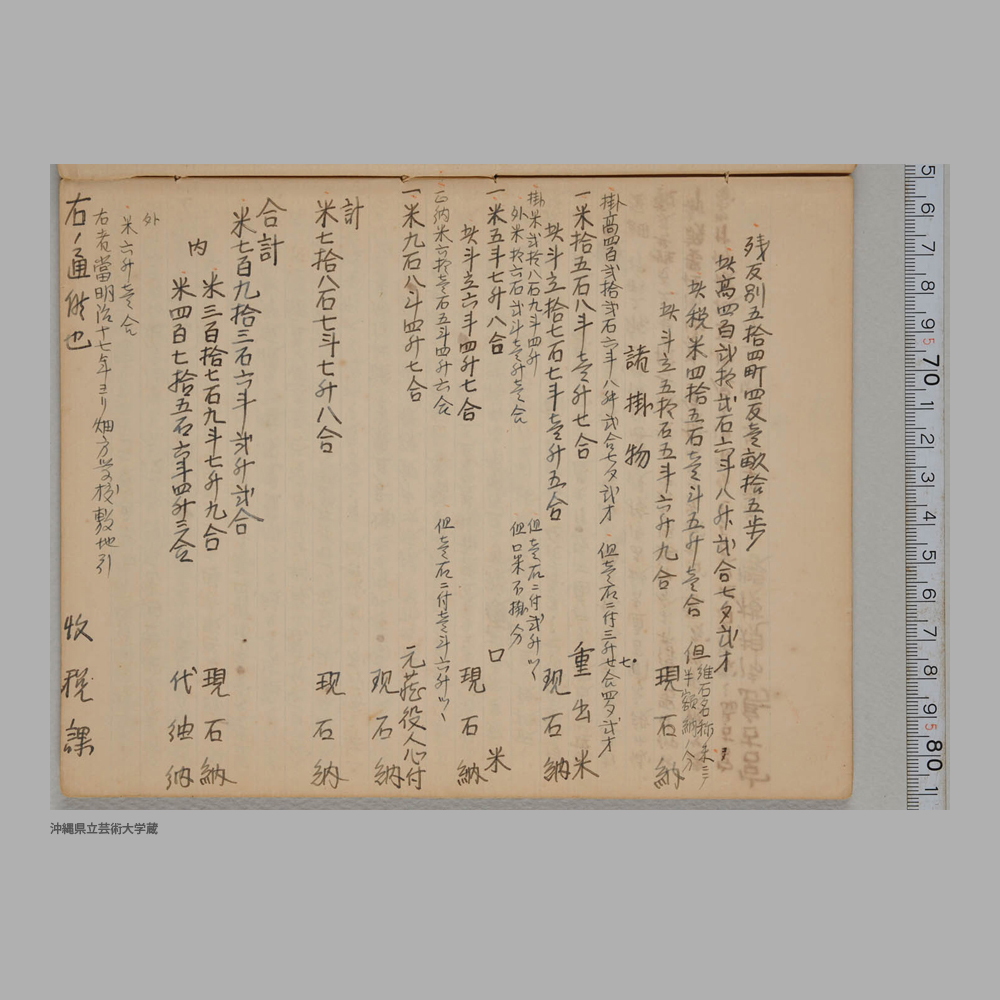 残反別五拾四町四反壱畝拾五歩
此高四百弐拾弐石六斗八升弐合七夕弐才
此税米四拾五石壱斗五升壱合 但
雑石名称米三
半額納ノ分
此斗立五拾石五斗六升九合 現石納
諸掛物
掛高四百弐拾弐石六斗八升弐合七夕弐才 但壱石ニ付三升七合四夕弐才
一米拾五石八斗壱升七合 重出米
此斗立拾七石七斗壱升五合 現石納
掛米弐拾八石九斗四升 但壱石ニ付弐升ツヽ
外米拾六石弐斗壱升壱合 但口米不掛分
一米五斗七升八合 口米
此斗立六斗四升七合 現石納
正納米六拾壱石五斗四升六合 但壱石ニ付壱斗六升ツヽ
一米九石八斗四升七合 元蔵役人心付
現石納
計
米七拾八石七斗七升八合 現石納
合計
米七百九拾三石六斗弐升弐合
内
米三百拾七石九斗七升九合 現石納
米四百七拾五石六斗四升三合 代納
外
米六升壱合
右者當明治十七年ヨリ畑方学校敷地引
右ノ通候也 收税課
沖縄県立芸術大学蔵
5 6 7 8 9 70 1 2 3 4 5 6 7 8 9 80 1